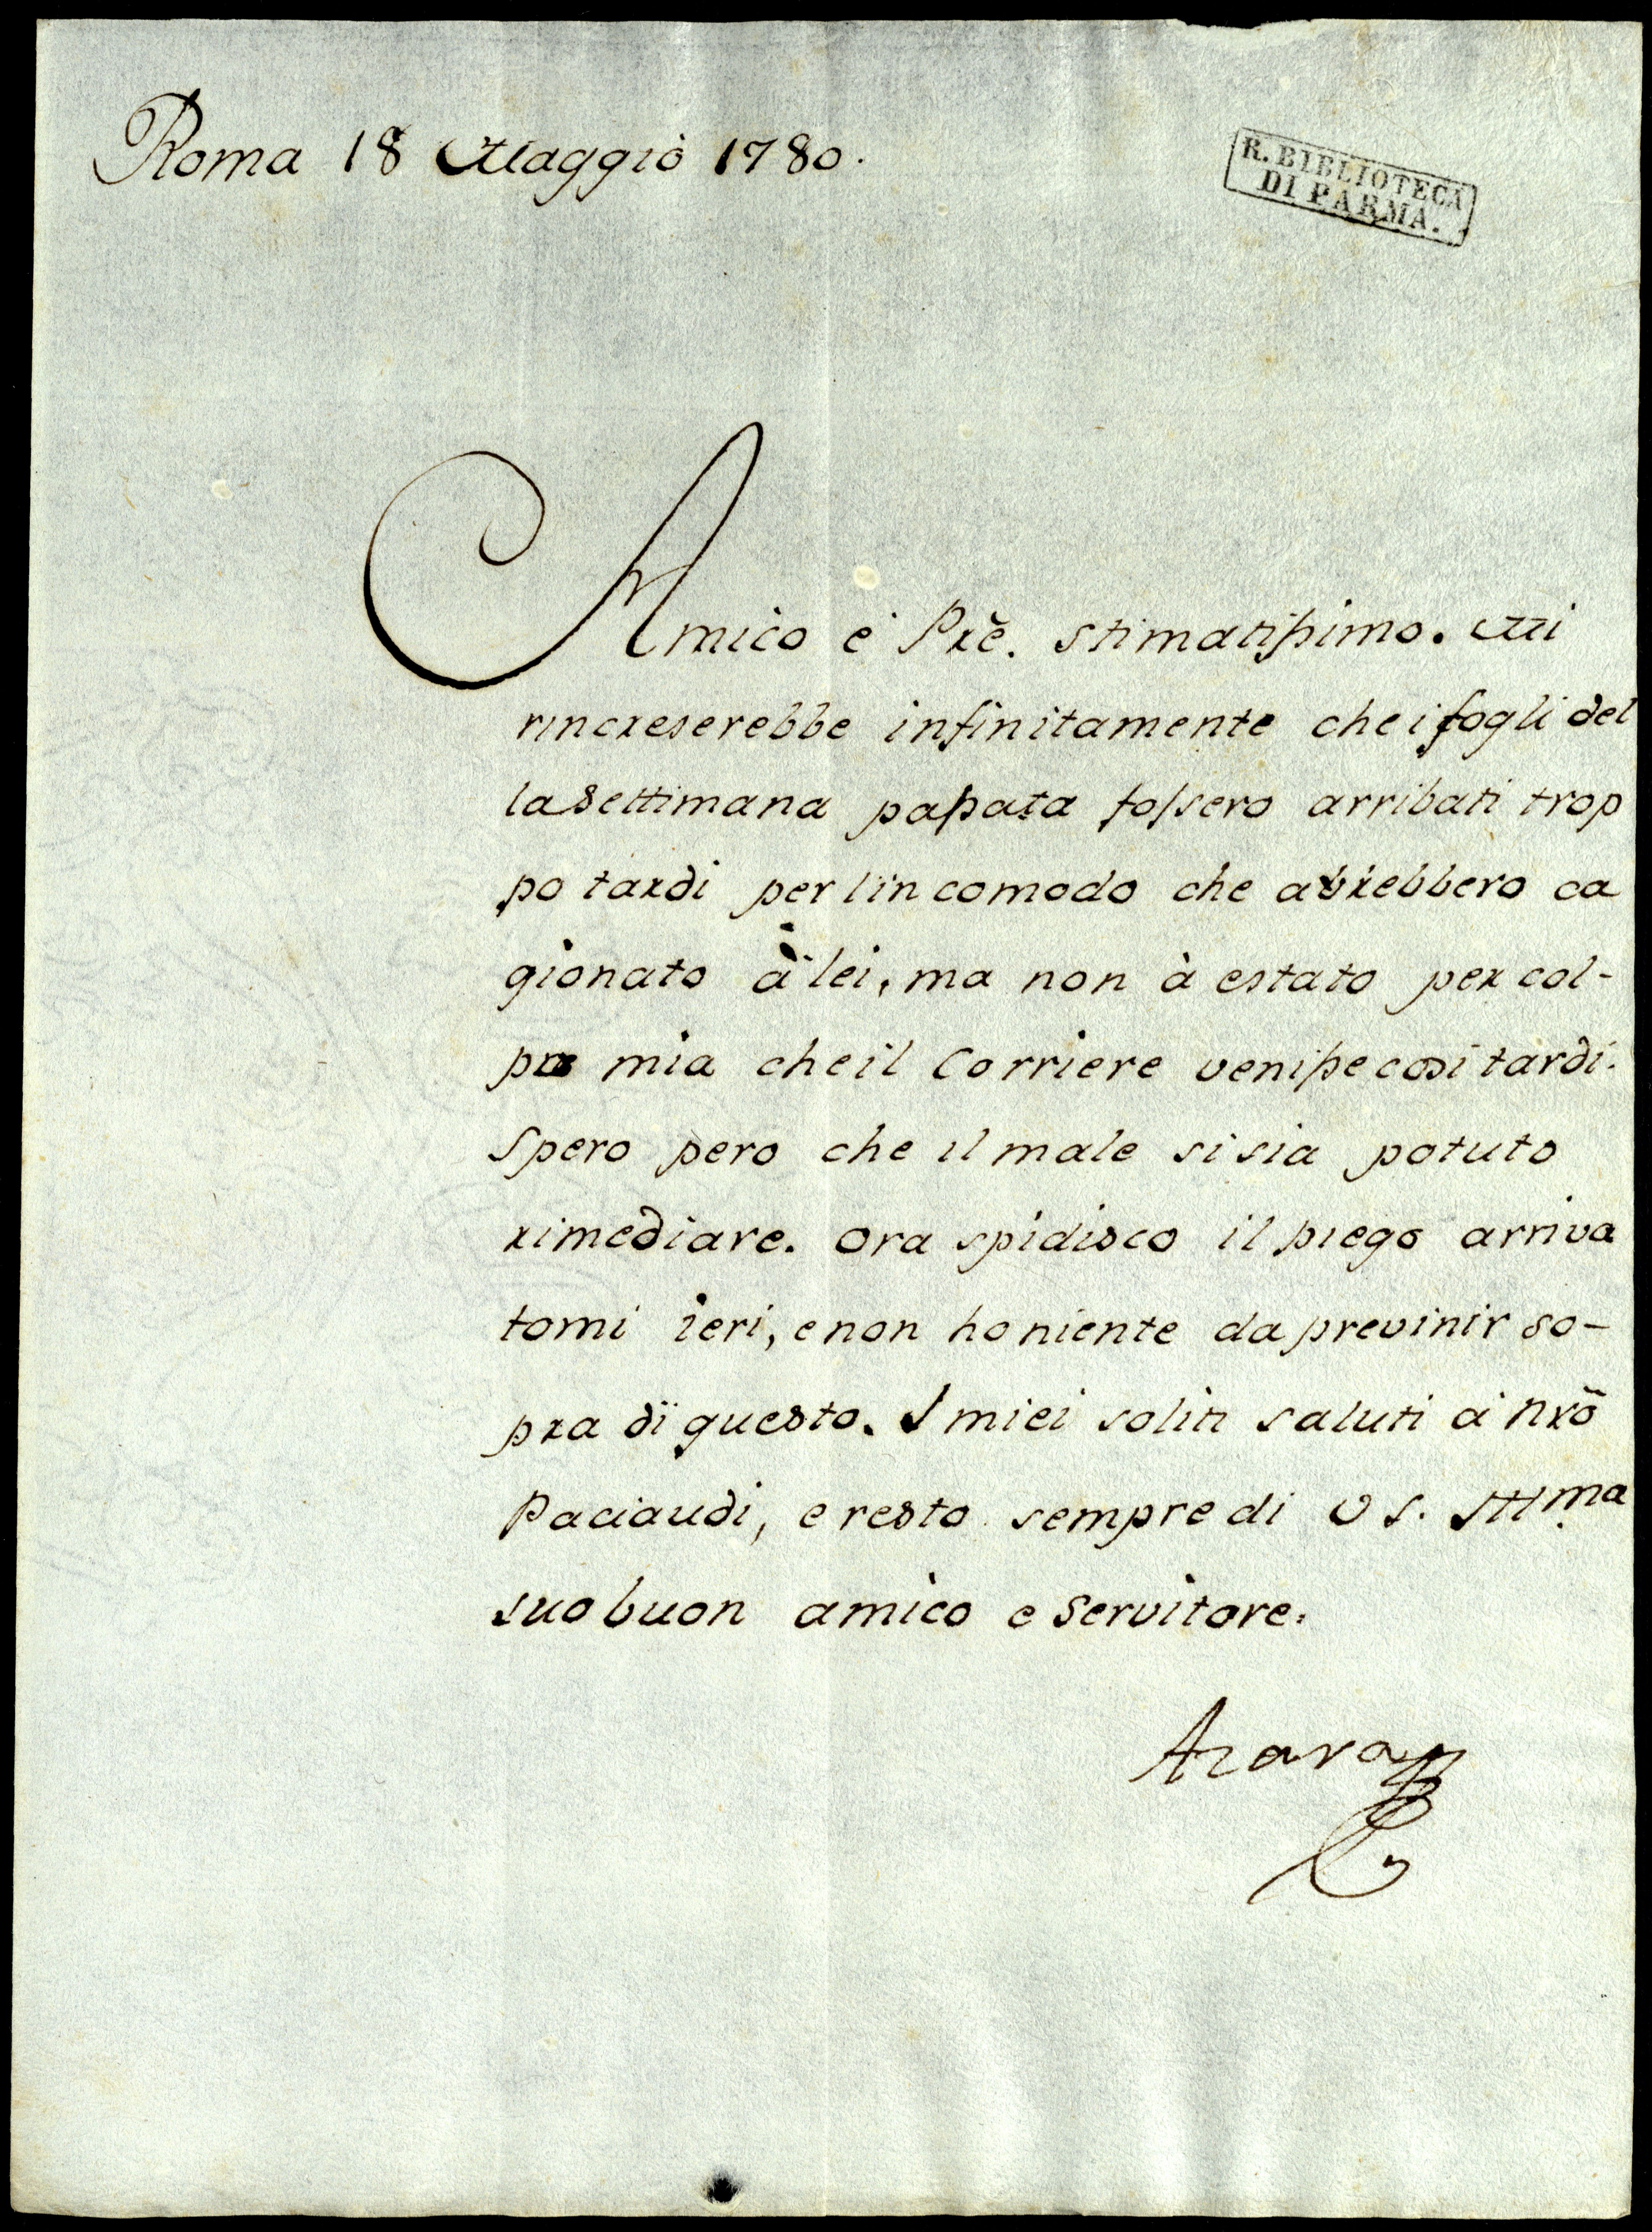 Roma 18 Maggio 1780.
R. BIBLIOTECA
DI PARMA.
Amico è Prẽ. stimatissimo. Mi
rincreserebbe infinitamente che i fogli del
la settimana passata fossero arribati trop
po tardi per lincomodo che avrebbero ca
gionato à lei, ma non à estato per col-
pa mia che il Corriere venisse cosi tardi.
Spero pero che il male si sia potuto
rimediare. Ora spidisco il piego arriva
tomi ieri, e non ho niente da previnir so-
pra di questo. I miei soliti saluti à nrõ
Paciaudi, e resto sempre di V S. Ill.ma
suo buon amico e Servitore.
Azara